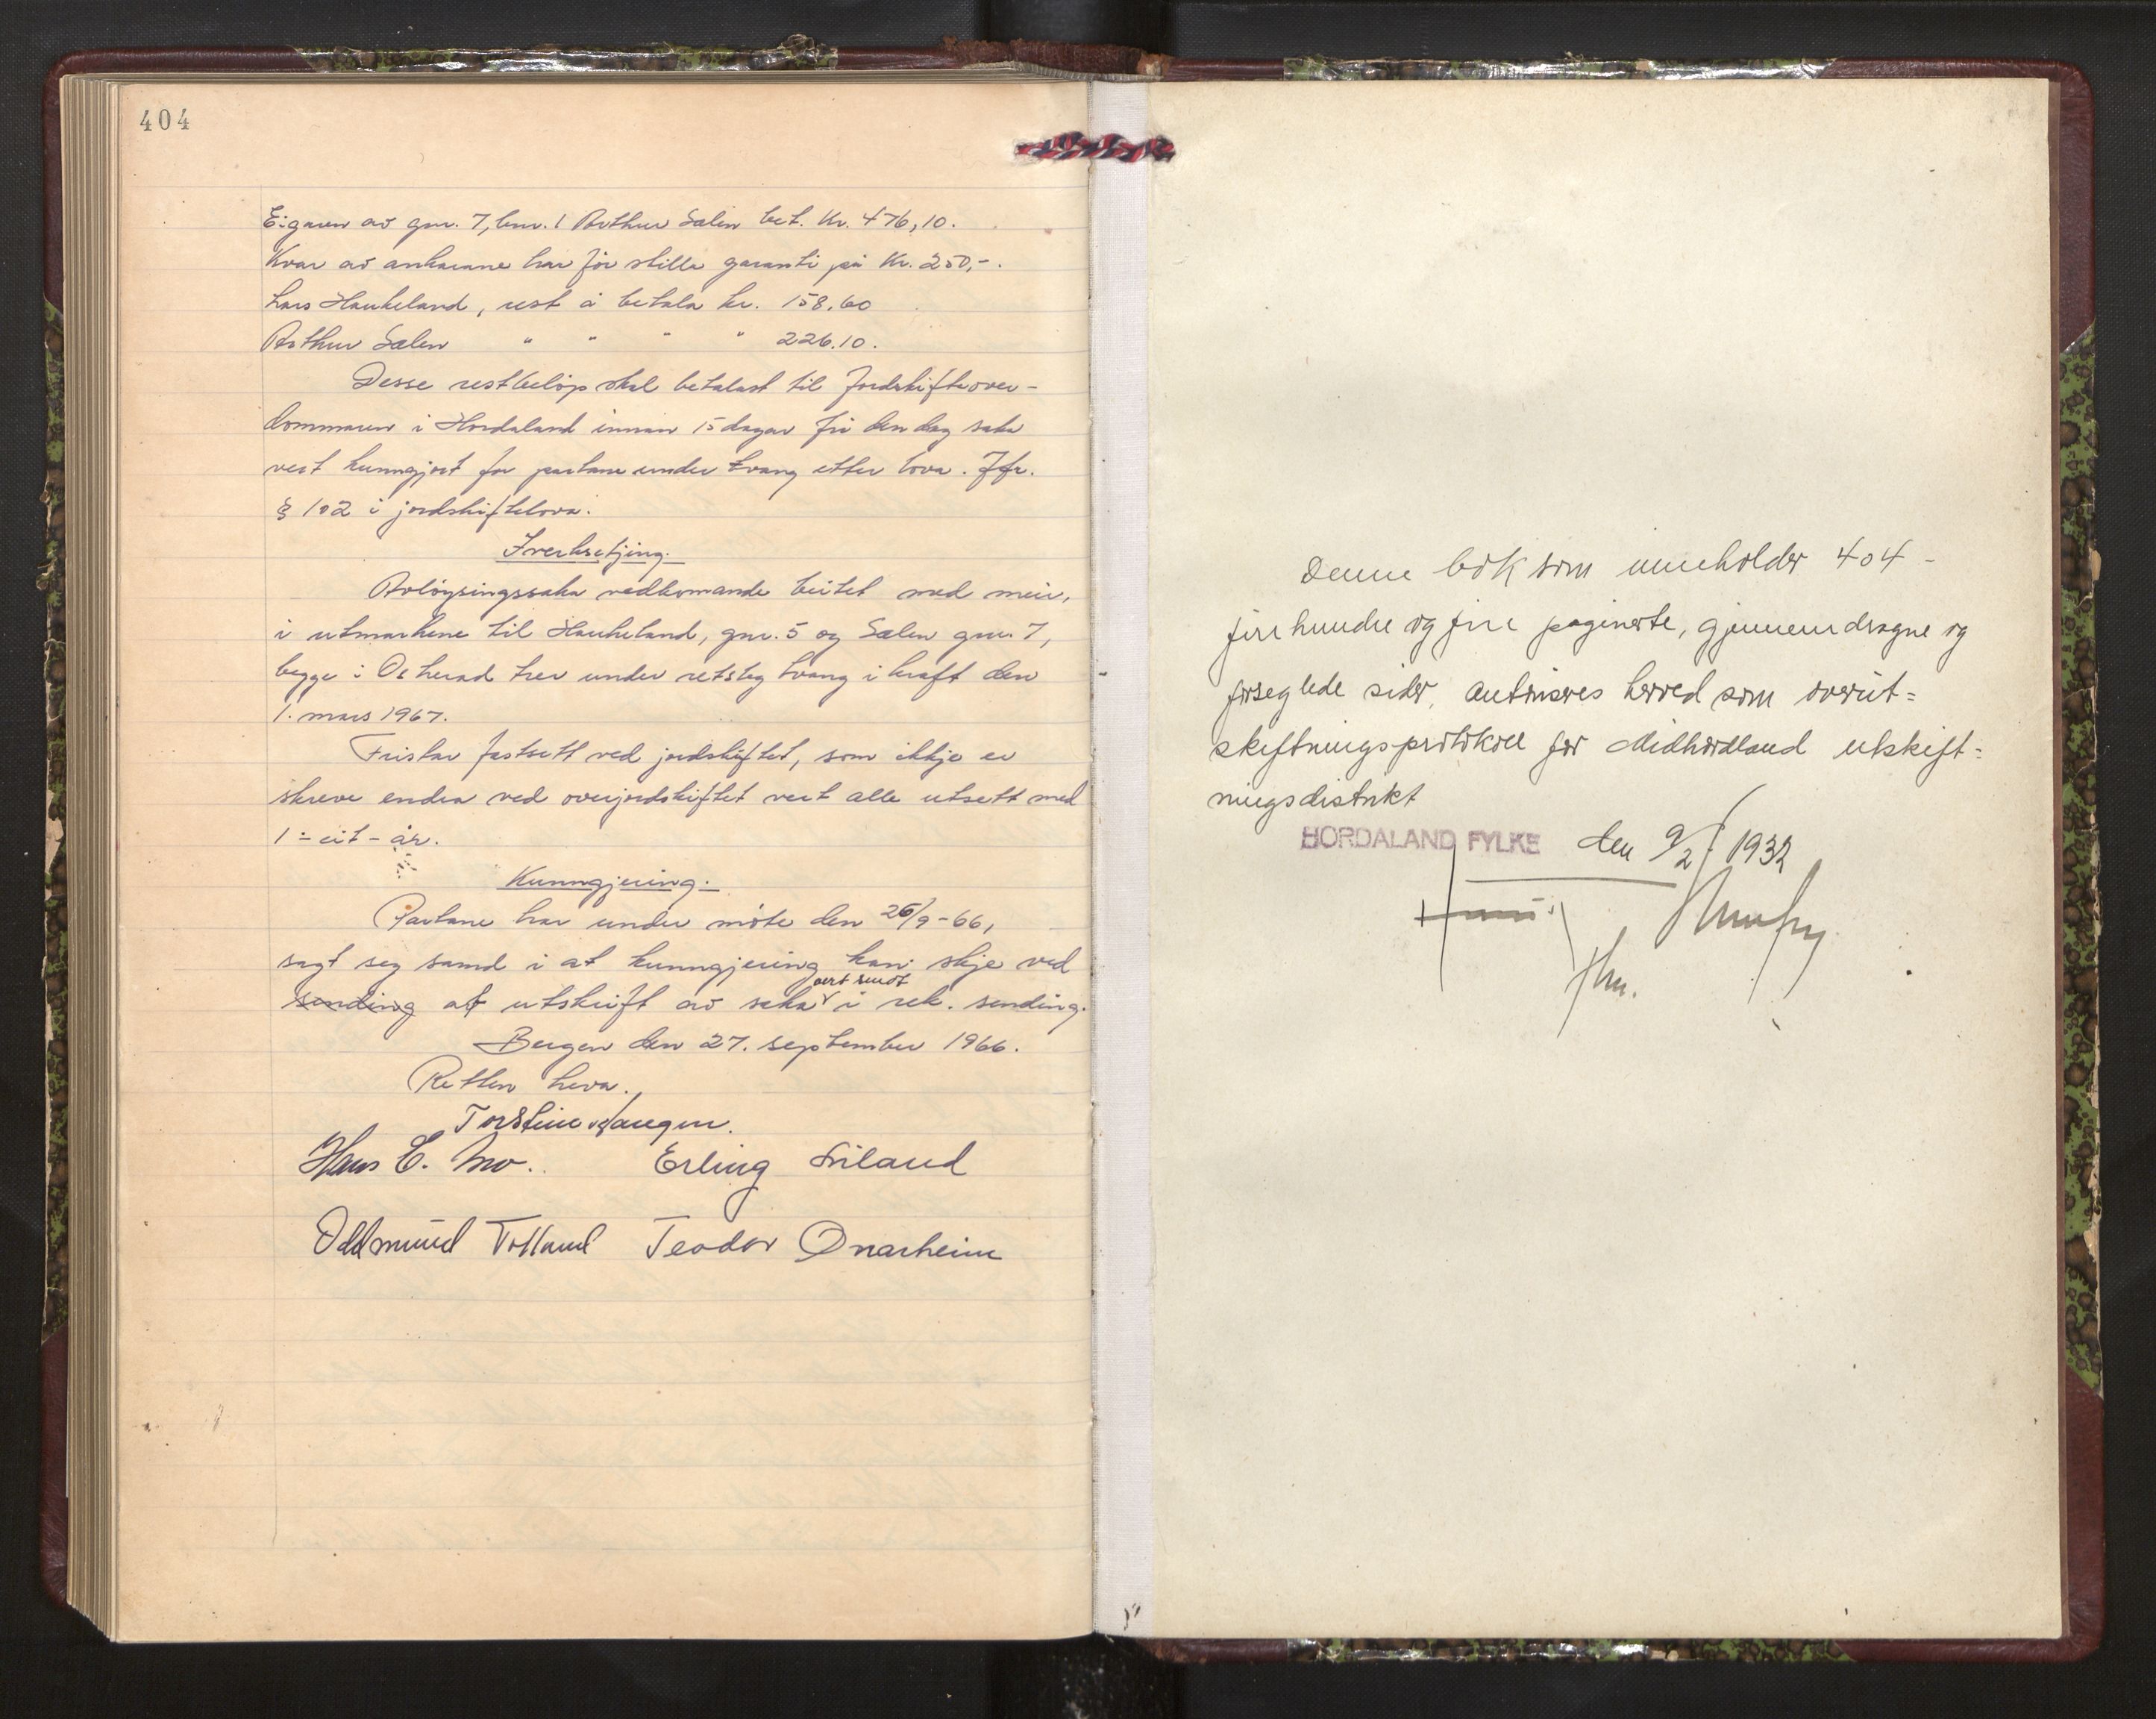 404
Eigaren av gnr. 7, bnr. 1 Arthur Sælen bet. kr. 476,10.
Kvar av ankarane har før stille garanti på kr. 250,-.
Lars Haukeland, rest å betala kr. 158.60
Arthur Sælen " " " " 226.10.
Desse restbeløp skal betalast til Jordskifteover-
dommaren i Hordaland innan 15 dagar frå den dag saka
vert kunngjort for partane under tvang etter lova. Jfr.
§ 102 i jordskiftelova.
Iverksetjing.
Avløysingssaka vedkomande beitet med meir,
i utmarkene til Haukeland, gnr. 5 og Sælen gnr. 7,
begge i Os herad trer under retsleg tvang i kraft den
1. mars 1967.
Fristar fastsett ved jordskiftet, som ikkje er
skreve endra ved overjordskiftet vert alle utsett med
1 - eit - år.
Kunngjering.
Partane har under møte den 26/9-66,
sagt seg samd i at kunngjering kan skje ved
vert sendt
sending at utskrift av saka i rek. sending.
Bergen den 27. september 1966.
Retten heva.
Torstein Haugen.
Hans E. Mo. Erling Friland
Oddmund Tolland Teodor Onarheim
Denne bok som inneholder 404 -
firehundre og fire paginerte, gjennemdragne og
forseglede sider, autoriseres herved som overut=
skiftningsprotokoll for Midhordland utskift=
ningsdistrikt
HORDALAND FYLKE den 9/2 1932